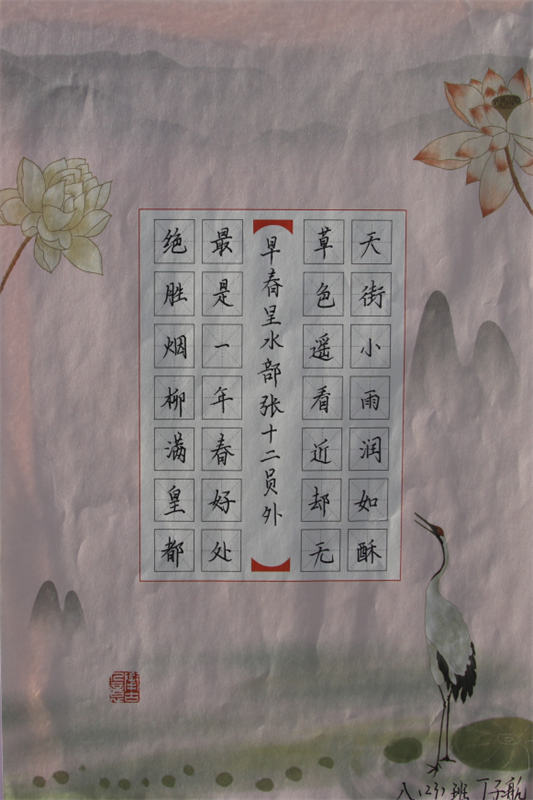 天街小雨润如酥
草色遥看近却无
早春呈水部张十二员外
最是一年春好处
绝胜烟柳满皇都
八(23)班 丁子航